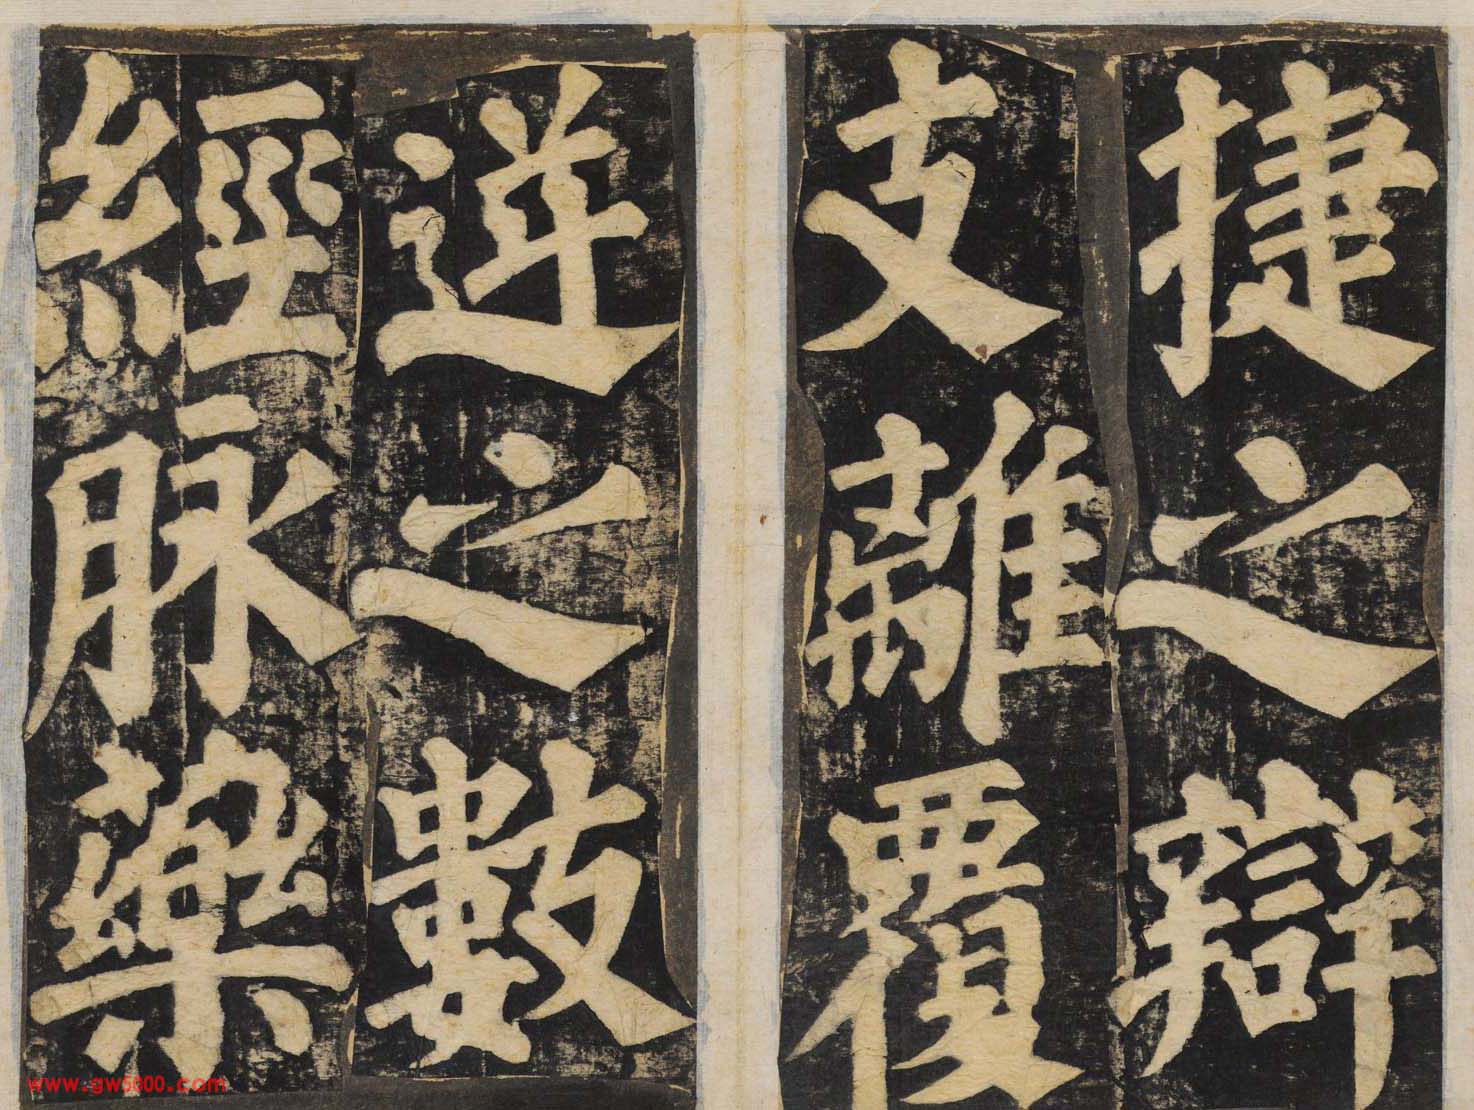 捷之辯
支離覆
逆之數
經脉藥
www.gw5000.com